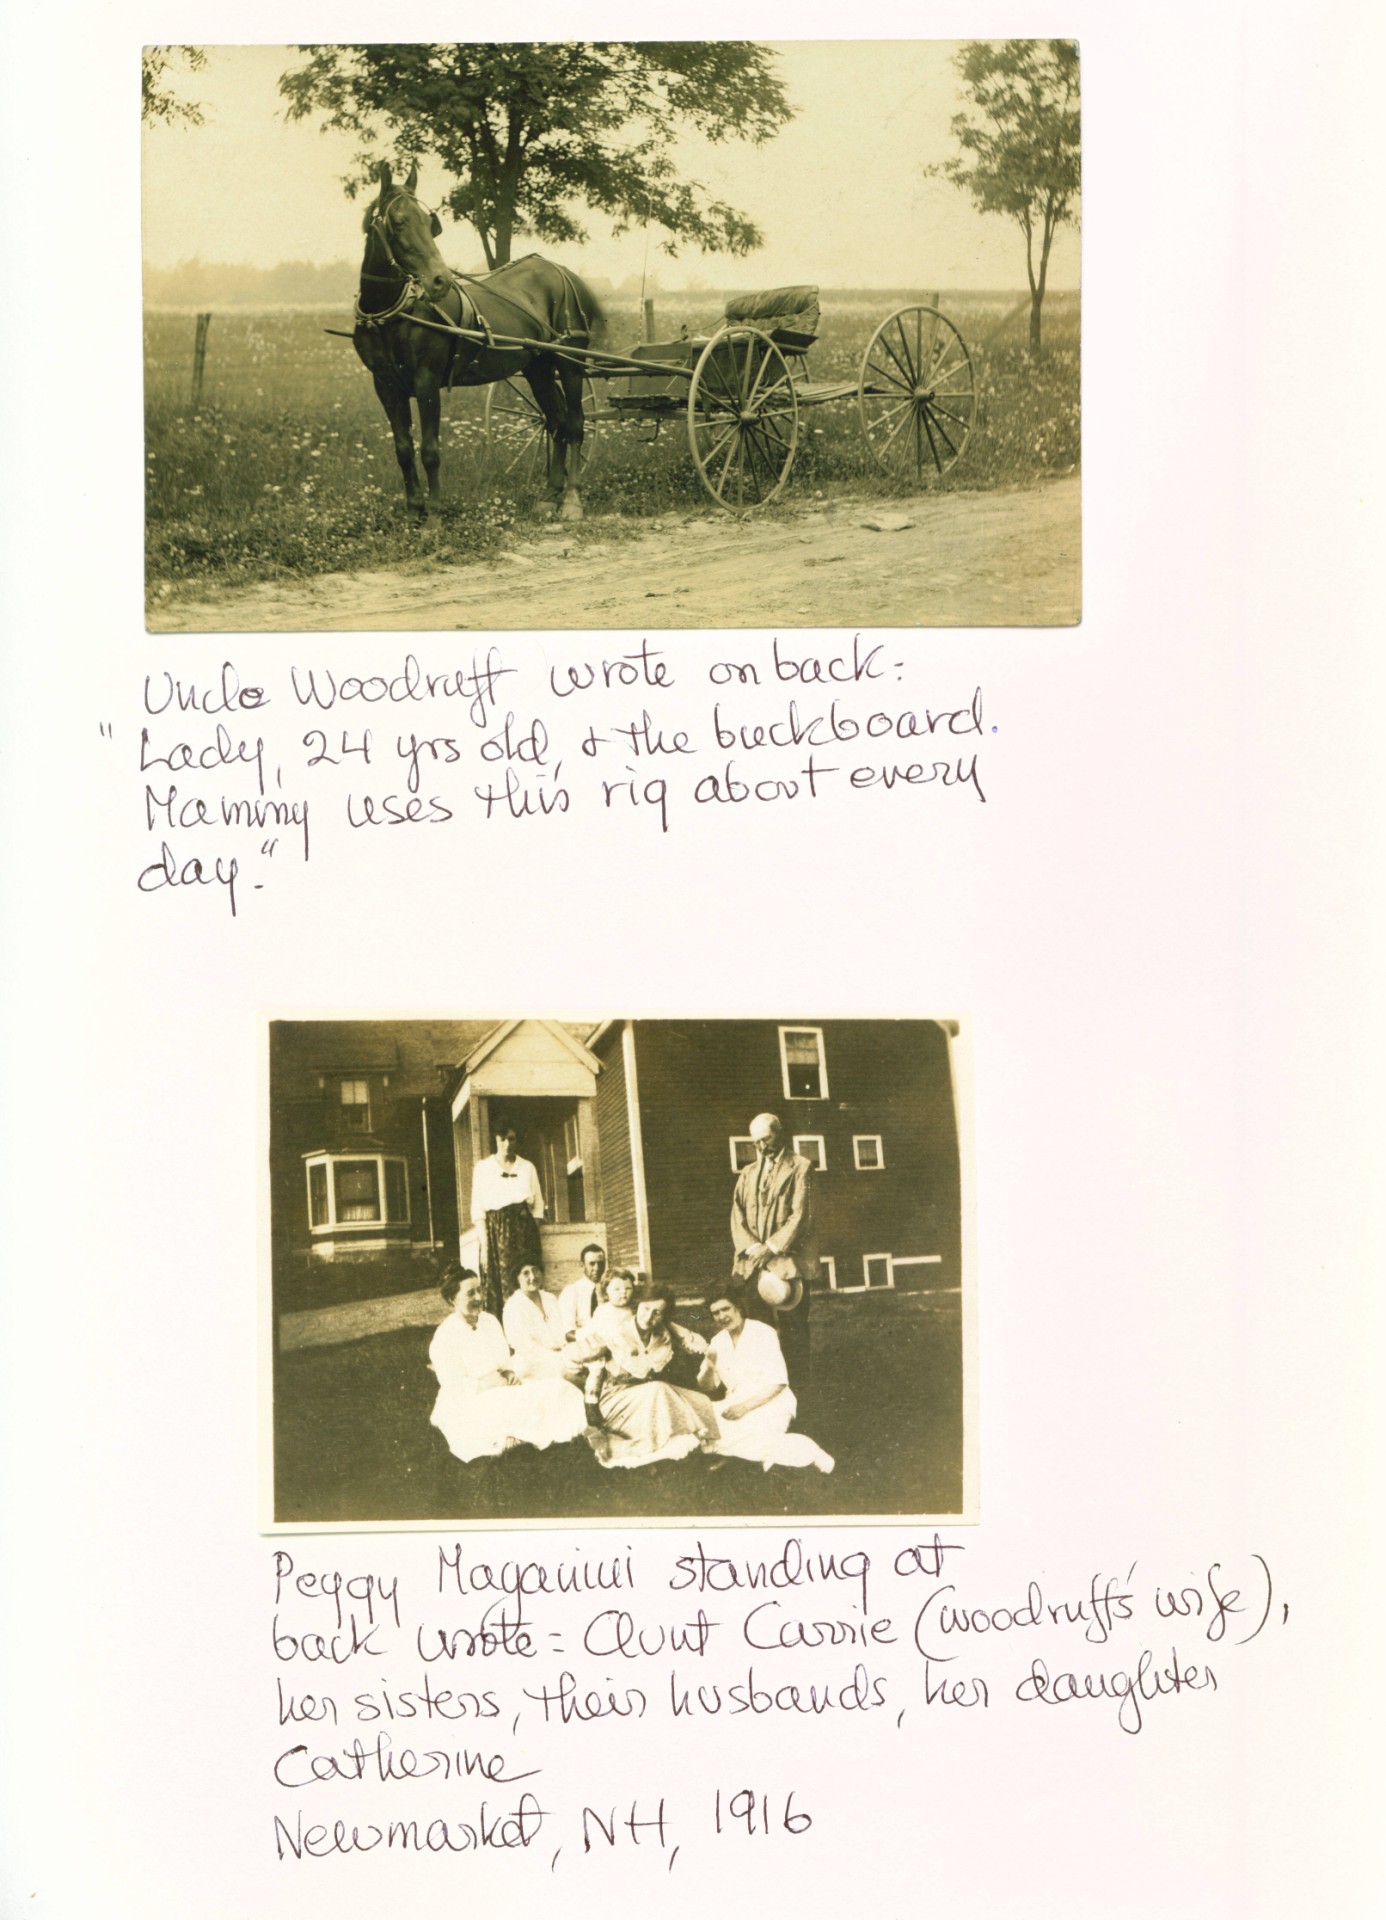 Uncle Woodruff wrote on back:
"Lady, 24 yrs old, & the buckboard.
Mammy uses this rig about every
day."
Peggy Maganini standing at
back wrote: Aunt Carrie (Woodruff's wife),
her sisters, their husbands, her daughter
Catherine
Newmarket, NH, 1916